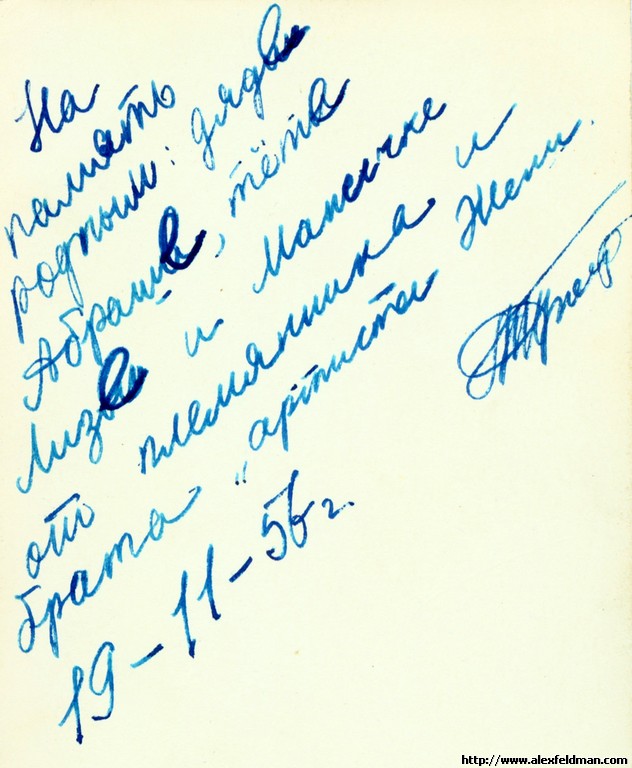 На
память
родным: дяде
Абраше, тёте
Лизе и Манечке
от племянника и
брата „артиста Жени.
19-11-56г.
http://www.alexfeldman.com